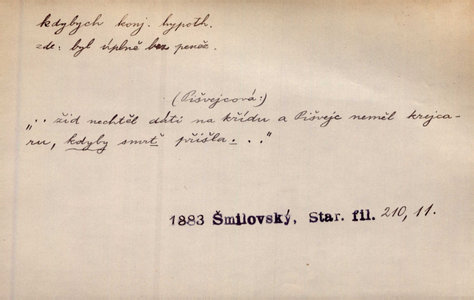 kdybych konj. hypoth.
zde: byl úplně bez peněz.
(Pišvejcová:)
„.. žid nechtěl dáti na křídu a Pišvejc neměl krejca-
ru, kdyby smrť přišla. . ."
1883 Šmilovský, Star. fil. 210, 11.